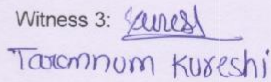 Witness 3:
Tarannum Kureshi